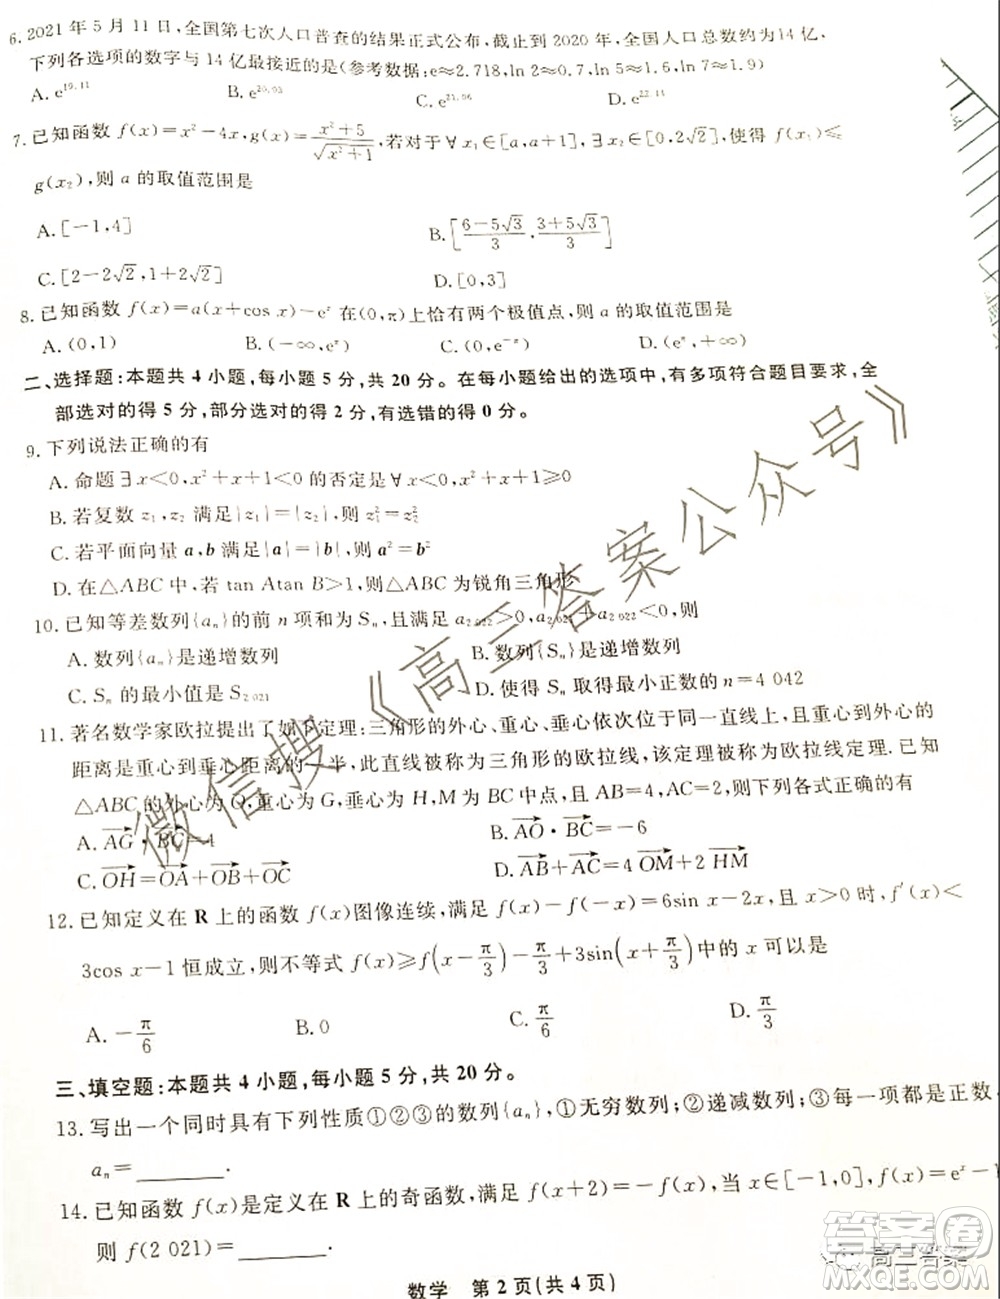 6. 2021 年 5 月 11 日,全国第七次人口普查的结果正式公布,截止到 2020 年,全国人口总数约为 14 亿,
下列各选项的数字与 14 亿最接近的是(参考数据:e≈2.718,ln 2≈0.7,ln 5≈1.6,ln 7≈1.9)
A. e^{19.11} B. e^{20.03} C. e^{21.06} D. e^{22.11}
7. 已知函数 f(x)=x²-4x,g(x)=\frac{x²+5}{\sqrt{x²+1}},若对于∀x₁∈[a,a+1],∃x₂∈[0,2√2],使得 f(x₁)≤
g(x₂),则 a 的取值范围是
A. [-1,4] B. [\frac{6-5√3}{3},\frac{3+5√3}{3}]
C. [2-2√2,1+2√2] D. [0,3]
8. 已知函数 f(x)=a(x+cos x)-eˣ 在(0,π)上恰有两个极值点,则 a 的取值范围是
A. (0,1) B. (-∞,e^π) C. (0,e^{-π}) D. (e^π,+∞)
二、选择题:本题共 4 小题,每小题 5 分,共 20 分。在每小题给出的选项中,有多项符合题目要求,全
部选对的得 5 分,部分选对的得 2 分,有选错的得 0 分。
9. 下列说法正确的有
A. 命题∃x<0,x²+x+1<0 的否定是∀x<0,x²+x+1≥0
B. 若复数 z₁,z₂ 满足|z₁|=|z₂|,则 z₁²=z₂²
C. 若平面向量 a,b 满足|a|=|b|,则 a²=b²
D. 在△ABC 中,若 tan Atan B>1,则△ABC 为锐角三角形
10. 已知等差数列{aₙ}的前 n 项和为 Sₙ,a_{2 022}>0,a_{2 021}+a_{2 022}<0,则
A. 数列{aₙ}是递增数列 B. 数列{Sₙ}是递增数列
C. Sₙ 的最小值是 S_{2 021} D. 使得 Sₙ 取到最小正数的 n=4 042
11. 著名数学家欧拉提出了如下定理:三角形的外心、重心、垂心依次位于同一直线上,且重心到外心的
距离是重心到垂心距离的一半,此直线被称为三角形的欧拉线,该定理被称为欧拉线定理. 已知
△ABC 的外心为 O,重心为 G,垂心为 H,M 为 BC 中点,且 AB=4,AC=2,则下列各式正确的有
A. \overrightarrow{AG}·\overrightarrow{BC}=4 B. \overrightarrow{AO}·\overrightarrow{BC}=-6
C. \overrightarrow{OH}=\overrightarrow{OA}+\overrightarrow{OB}+\overrightarrow{OC} D. \overrightarrow{AB}+\overrightarrow{AC}=4\overrightarrow{OM}+2\overrightarrow{HM}
12. 已知定义在 R 上的函数 f(x)图像连续,满足 f(x)-f(-x)=6sin x-2x,且 x>0 时,f′(x)<
3cos x-1 恒成立,则不等式 f(x)≥f(x-\frac{π}{3})-\frac{π}{3}+3sin(x+\frac{π}{3})中的 x 可以是
A. -\frac{π}{6} B. 0 C. \frac{π}{6} D. \frac{π}{3}
三、填空题:本题共 4 小题,每小题 5 分,共 20 分。
13. 写出一个同时具有下列性质①②③的数列{aₙ},①无穷数列;②递减数列;③每一项都是正数,
aₙ=______.
14. 已知函数 f(x)是定义在 R 上的奇函数,满足 f(x+2)=-f(x),当 x∈[-1,0],f(x)=eˣ-1
则 f(2 021)=______.
数学 第 2 页(共 4 页)
微信搜《高三答案公众号》
答案卷
高三答案